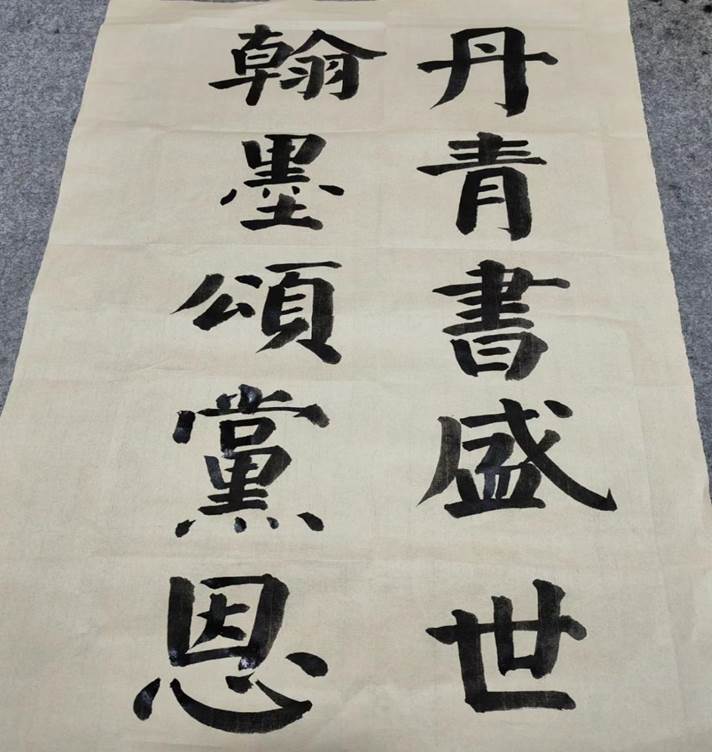 丹青書盛世
翰墨頌黨恩